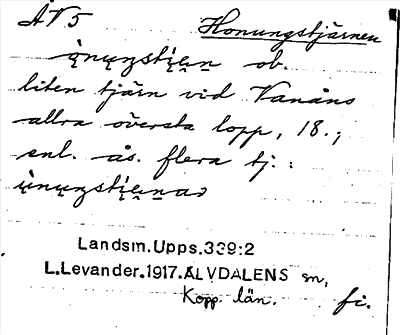 ÄV 5 Honungstjärnen
ob.
liten tjärn vid Vanåns
allra översta lopp, 18.;
enl. ås. flera tj.:
Landsm.Upps.339:2
L.Levander.1917.ÄLVDALENS sn,
Kopp. län. fi.